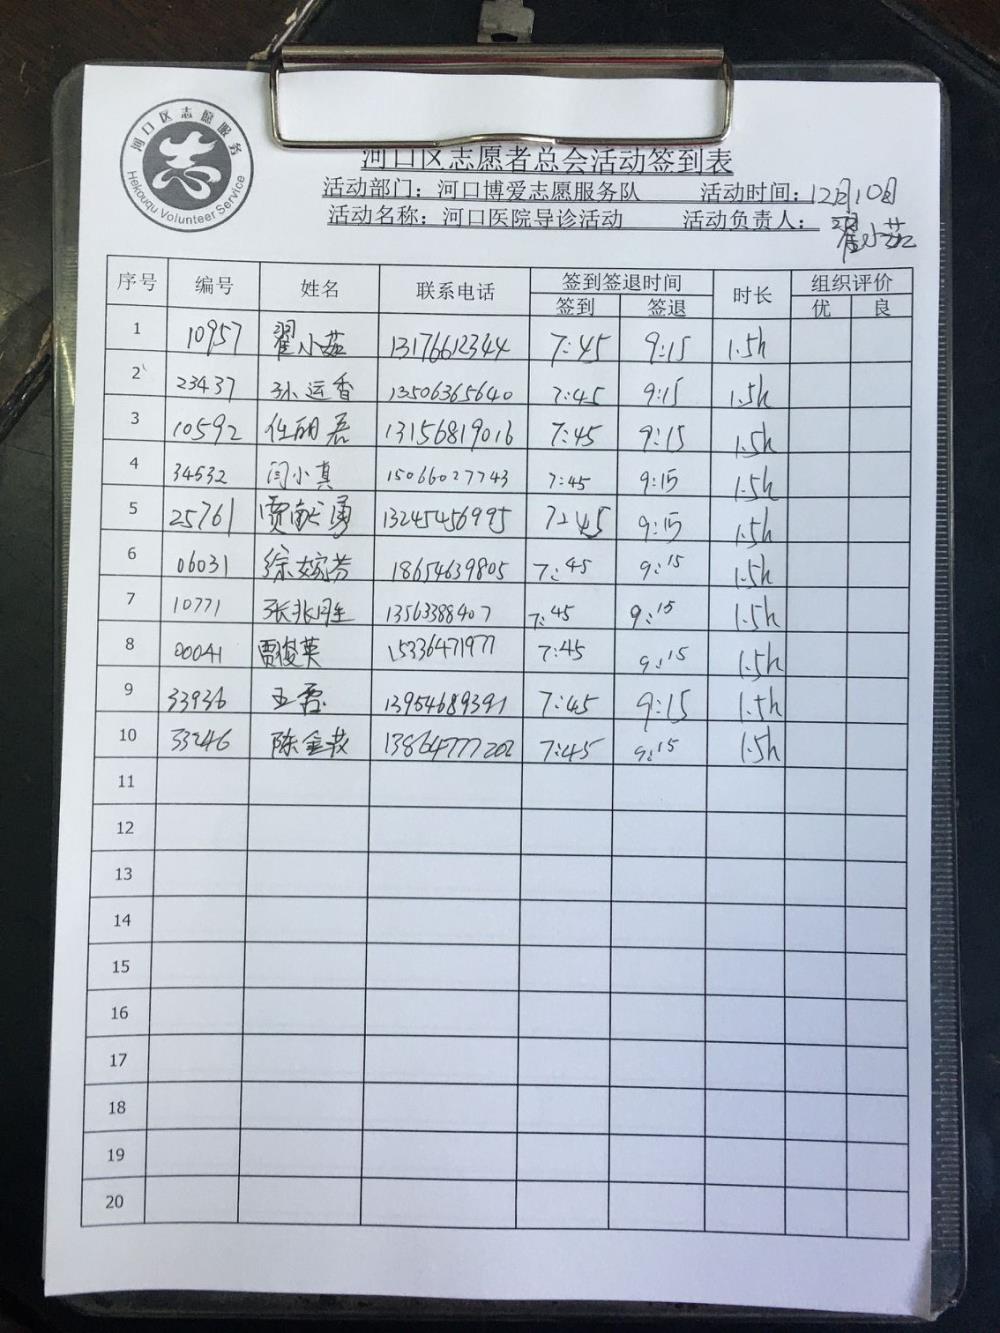 河口区志愿服务
Hekouqu Volunteer Service
河口区志愿者总会活动签到表
活动部门：河口博爱志愿服务队 活动时间：12月10日
活动名称：河口医院导诊活动 活动负责人：翟小茹
序号 编号 姓名 联系电话 签到签退时间 时长 组织评价
签到 签退 优 良
1 10957 翟小茹 13176612344 7:45 9:15 1.5h
2 23437 孙运香 13506365640 7:45 9:15 1.5h
3 10592 任丽君 13156819016 7:45 9:15 1.5h
4 34532 闫小真 15066027743 7:45 9:15 1.5h
5 25761 贾 勇 13245456995 7:45 9:15 1.5h
6 06031 徐婉芬 18654639805 7:45 9:15 1.5h
7 10771 张兆 13563388407 7:45 9:15 1.5h
8 00041 贾俊英 15336471977 7:45 9:15 1.5h
9 33936 王磊 13954689391 7:45 9:15 1.5h
10 33246 陈金 13864777202 7:45 9:15 1.5h
11
12
13
14
15
16
17
18
19
20